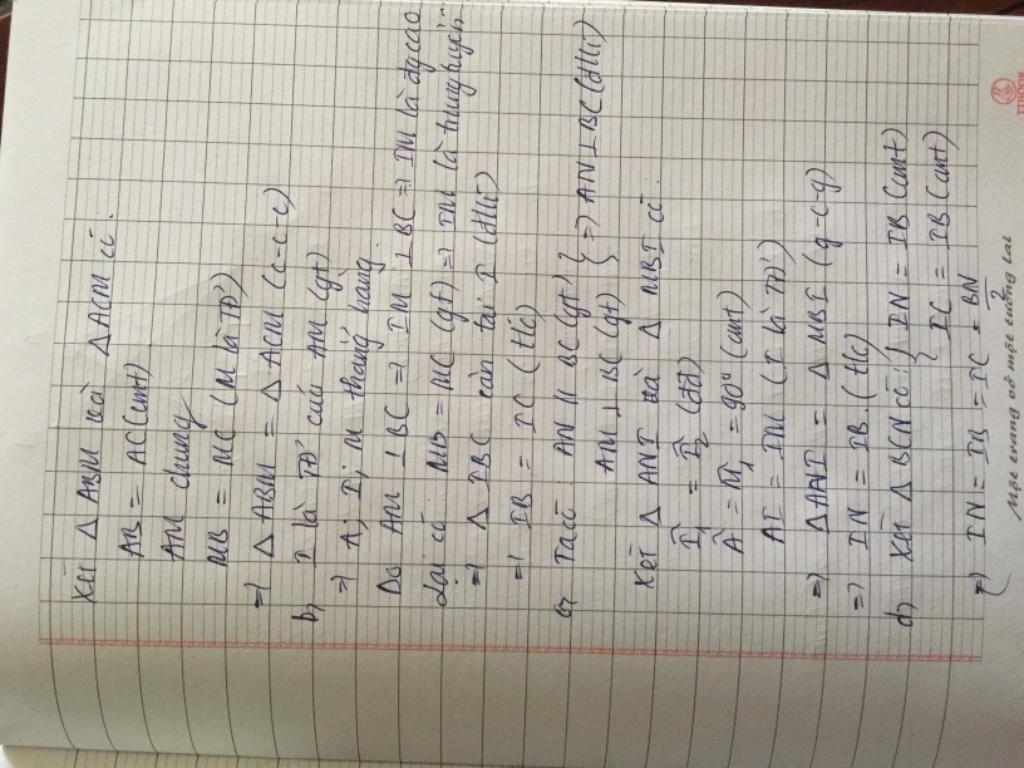 Xét Δ ABM và ΔACM có:
AB = AC (cmt)
AM chung
MB = MC (M là TĐ')
=> Δ ABM = Δ ACM (c-c-c)
b, I là TĐ' của AM (gt)
=> A; I; M thẳng hàng.
Do AM ⊥ BC => IM ⊥ BC => IM là đg cao
Lại có MB = MC (gt) => IM là trung tuyến
=> Δ IBC cân tại I (dhc)
=> IB = IC (t/c)
c, Ta có: AN // BC (gt) } => AN ⊥ BC (đlí)
AM ⊥ BC (gt)
Xét Δ ANI và Δ MBI có:
Î1 = Î2 (đđ)
Â = M̂1 = 90° (cmt)
AI = IM (I là TĐ')
=> ΔANI = Δ MBI (g-c-g)
=> IN = IB. (t/c)
d, Xét Δ BCN có: } IN = IB (cmt)
IC = IB (cmt)
=> IN = IB = IC = BN/2
Mặt trang vở một tương lai